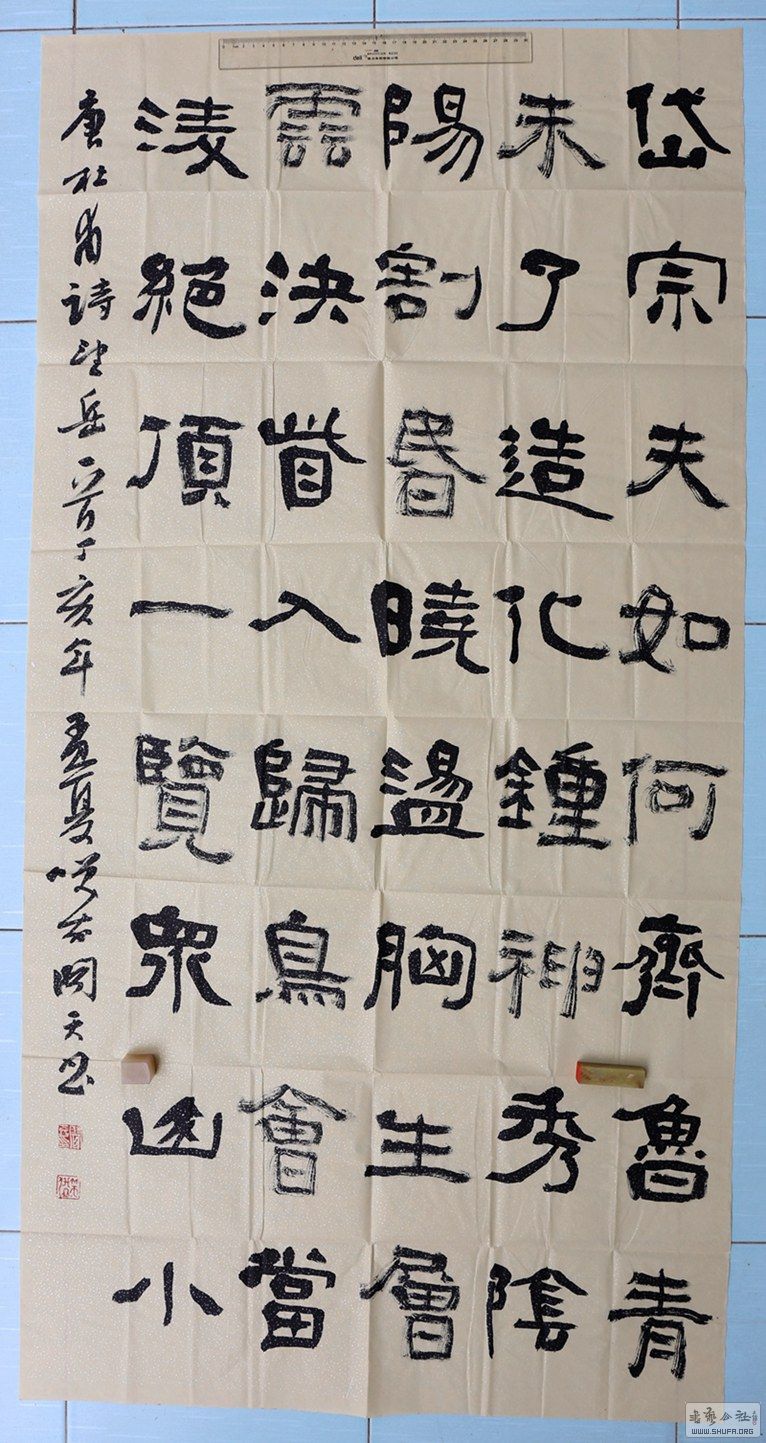 岱宗夫如何齊魯青
未了造化鍾神秀陰
陽割昬曉盪胸生層
雲決眥入歸鳥會當
淩絕頂一覽衆山小
唐杜甫詩望岳一首丁亥年孟夏
deli
書藝公社
WWW.SHUFA.ORG